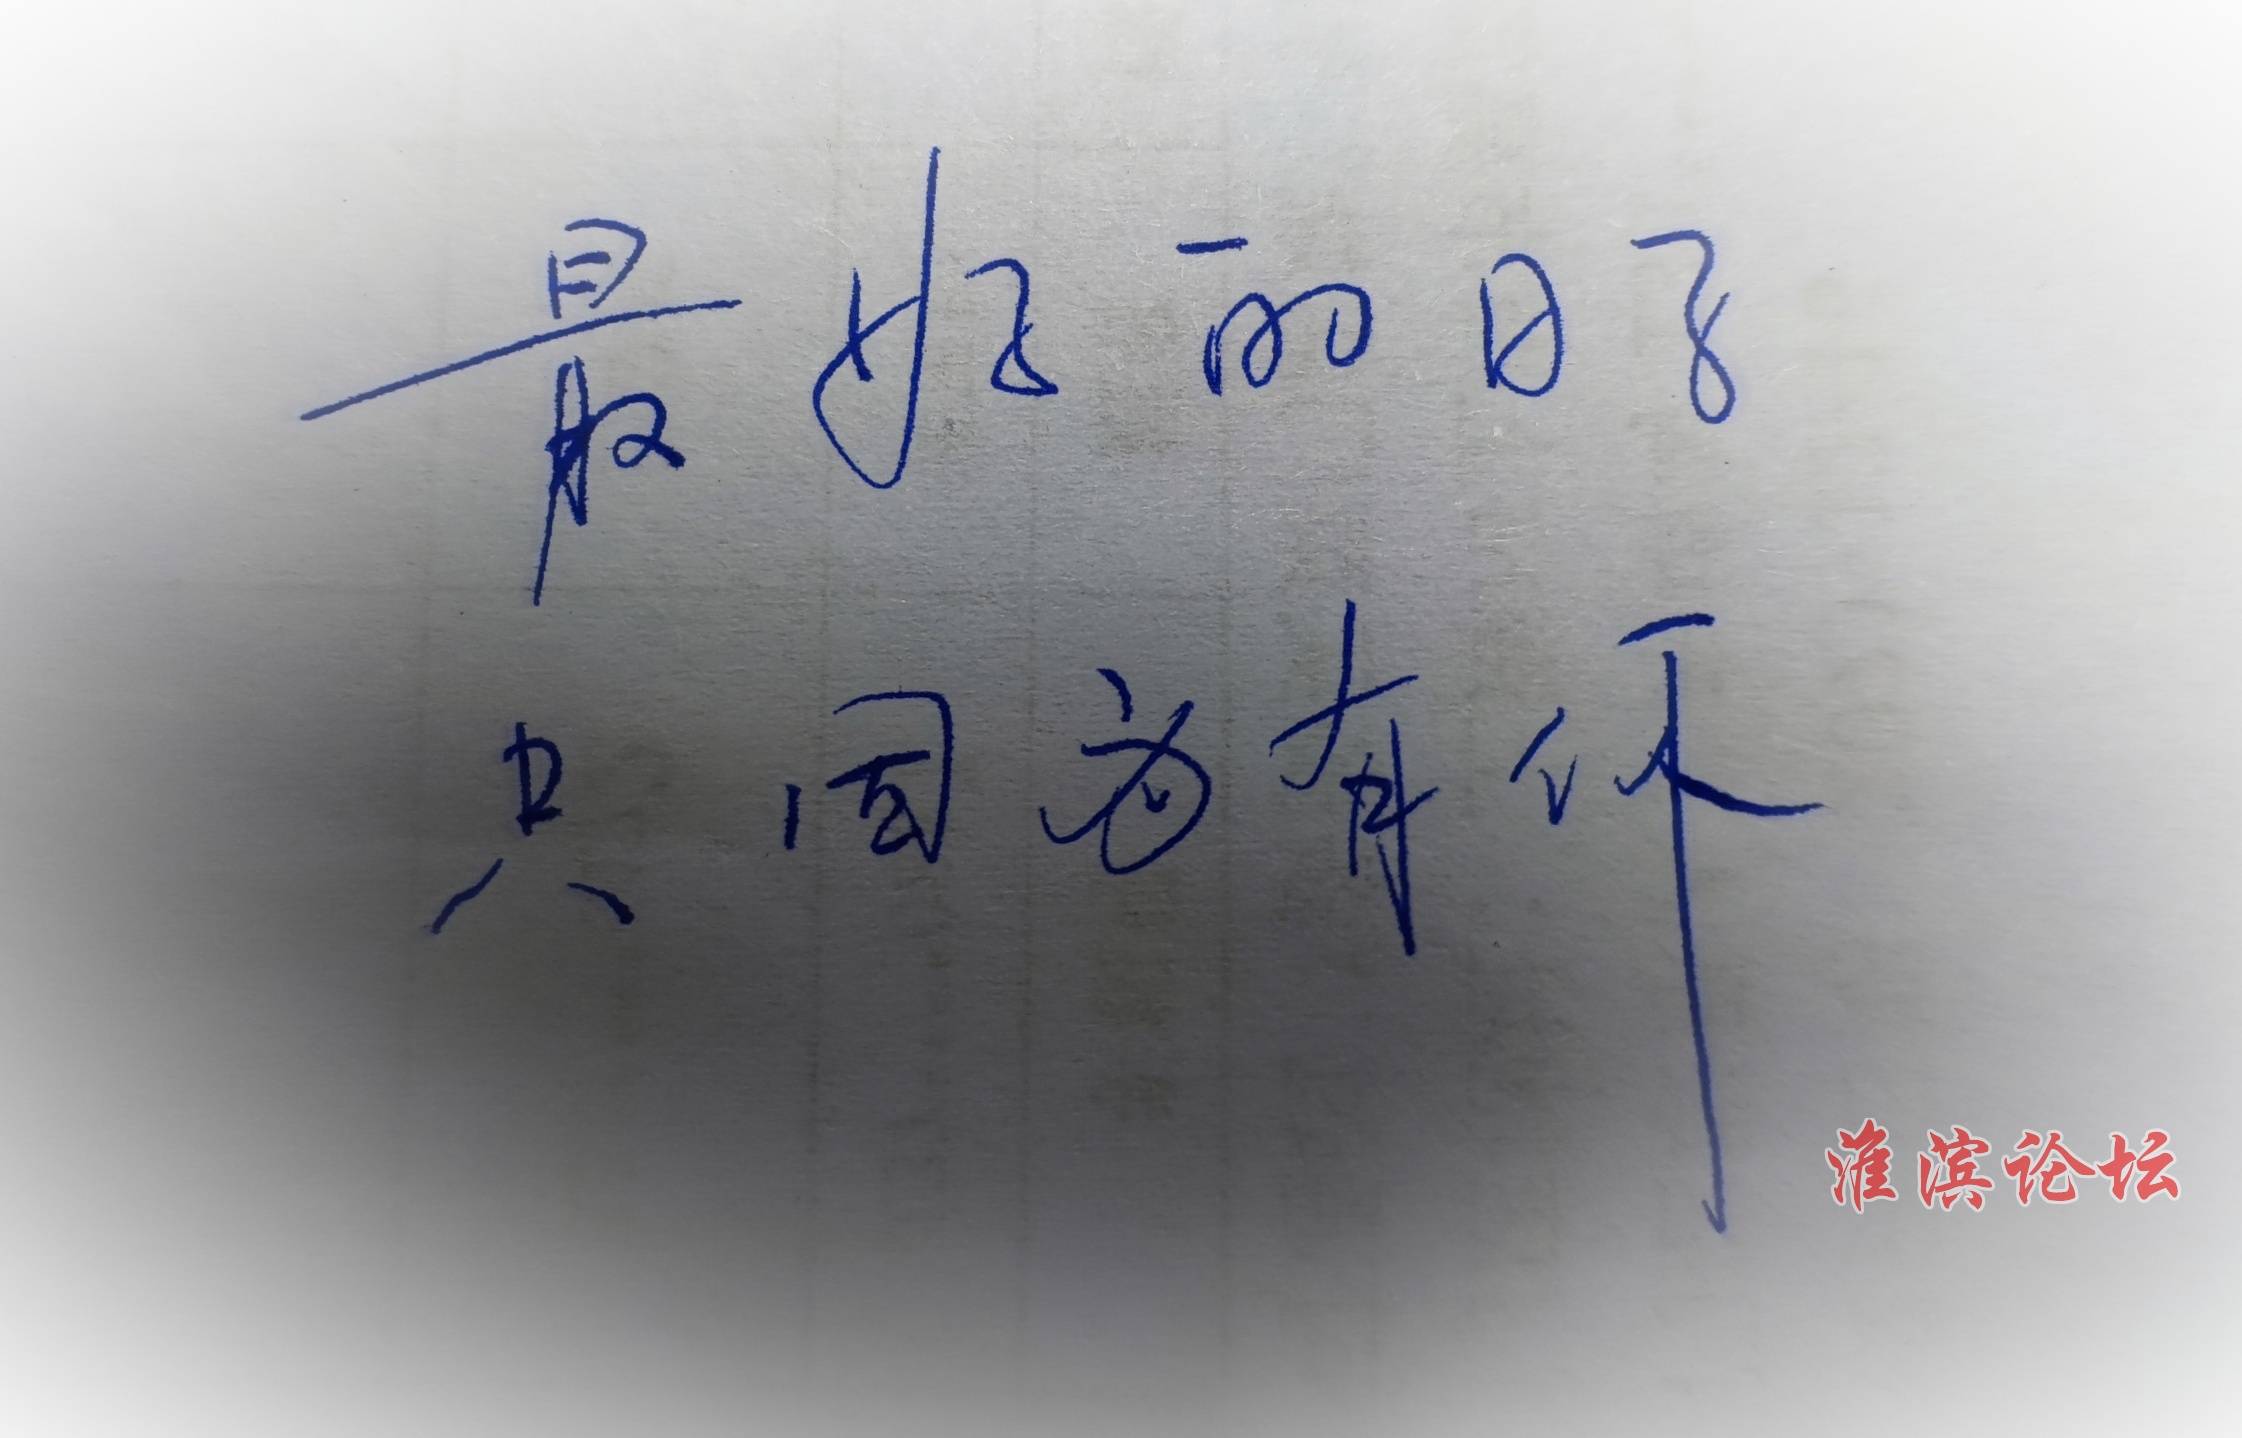 最好的日子
只因为有你
淮滨论坛